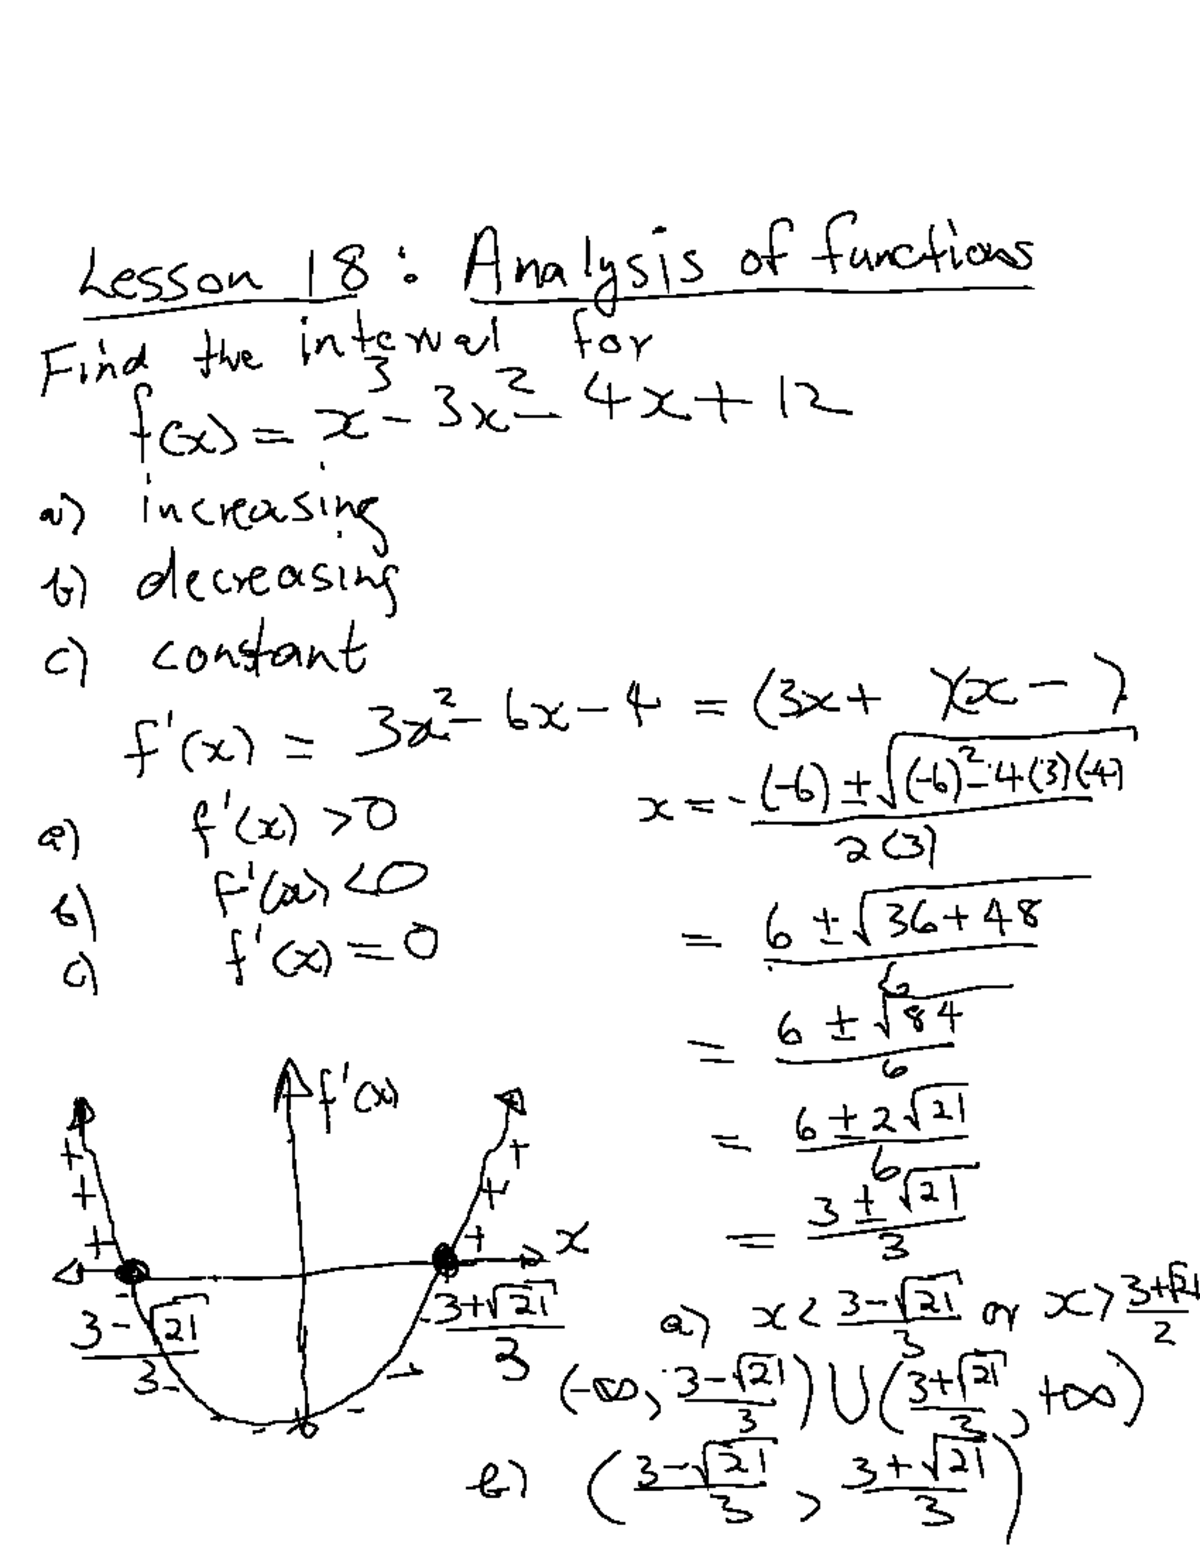 Lesson 18: Analysis of functions
Find the interval for
f(x) = x³ - 3x² - 4x + 12
a) increasing
b) decreasing
c) constant
f'(x) = 3x² - 6x - 4 = (3x +   )(x -  )
a) f'(x) > 0
b) f'(x) < 0
c) f'(x) = 0
x = -(-6) ± √((-6)² - 4(3)(-4)) / 2(3)
= 6 ± √(36 + 48) / 6
= 6 ± √84 / 6
= 6 ± 2√21 / 6
= 3 ± √21 / 3
f'(x)
+ +
+ +
+ +
x
(3 - √21) / 3
(3 + √21) / 3
- - - - - -
a) x < (3 - √21) / 3 or x > (3 + √21) / 2
(-∞, (3 - √21) / 3) ∪ ((3 + √21) / 3, +∞)
b) ((3 - √21) / 3, (3 + √21) / 3)